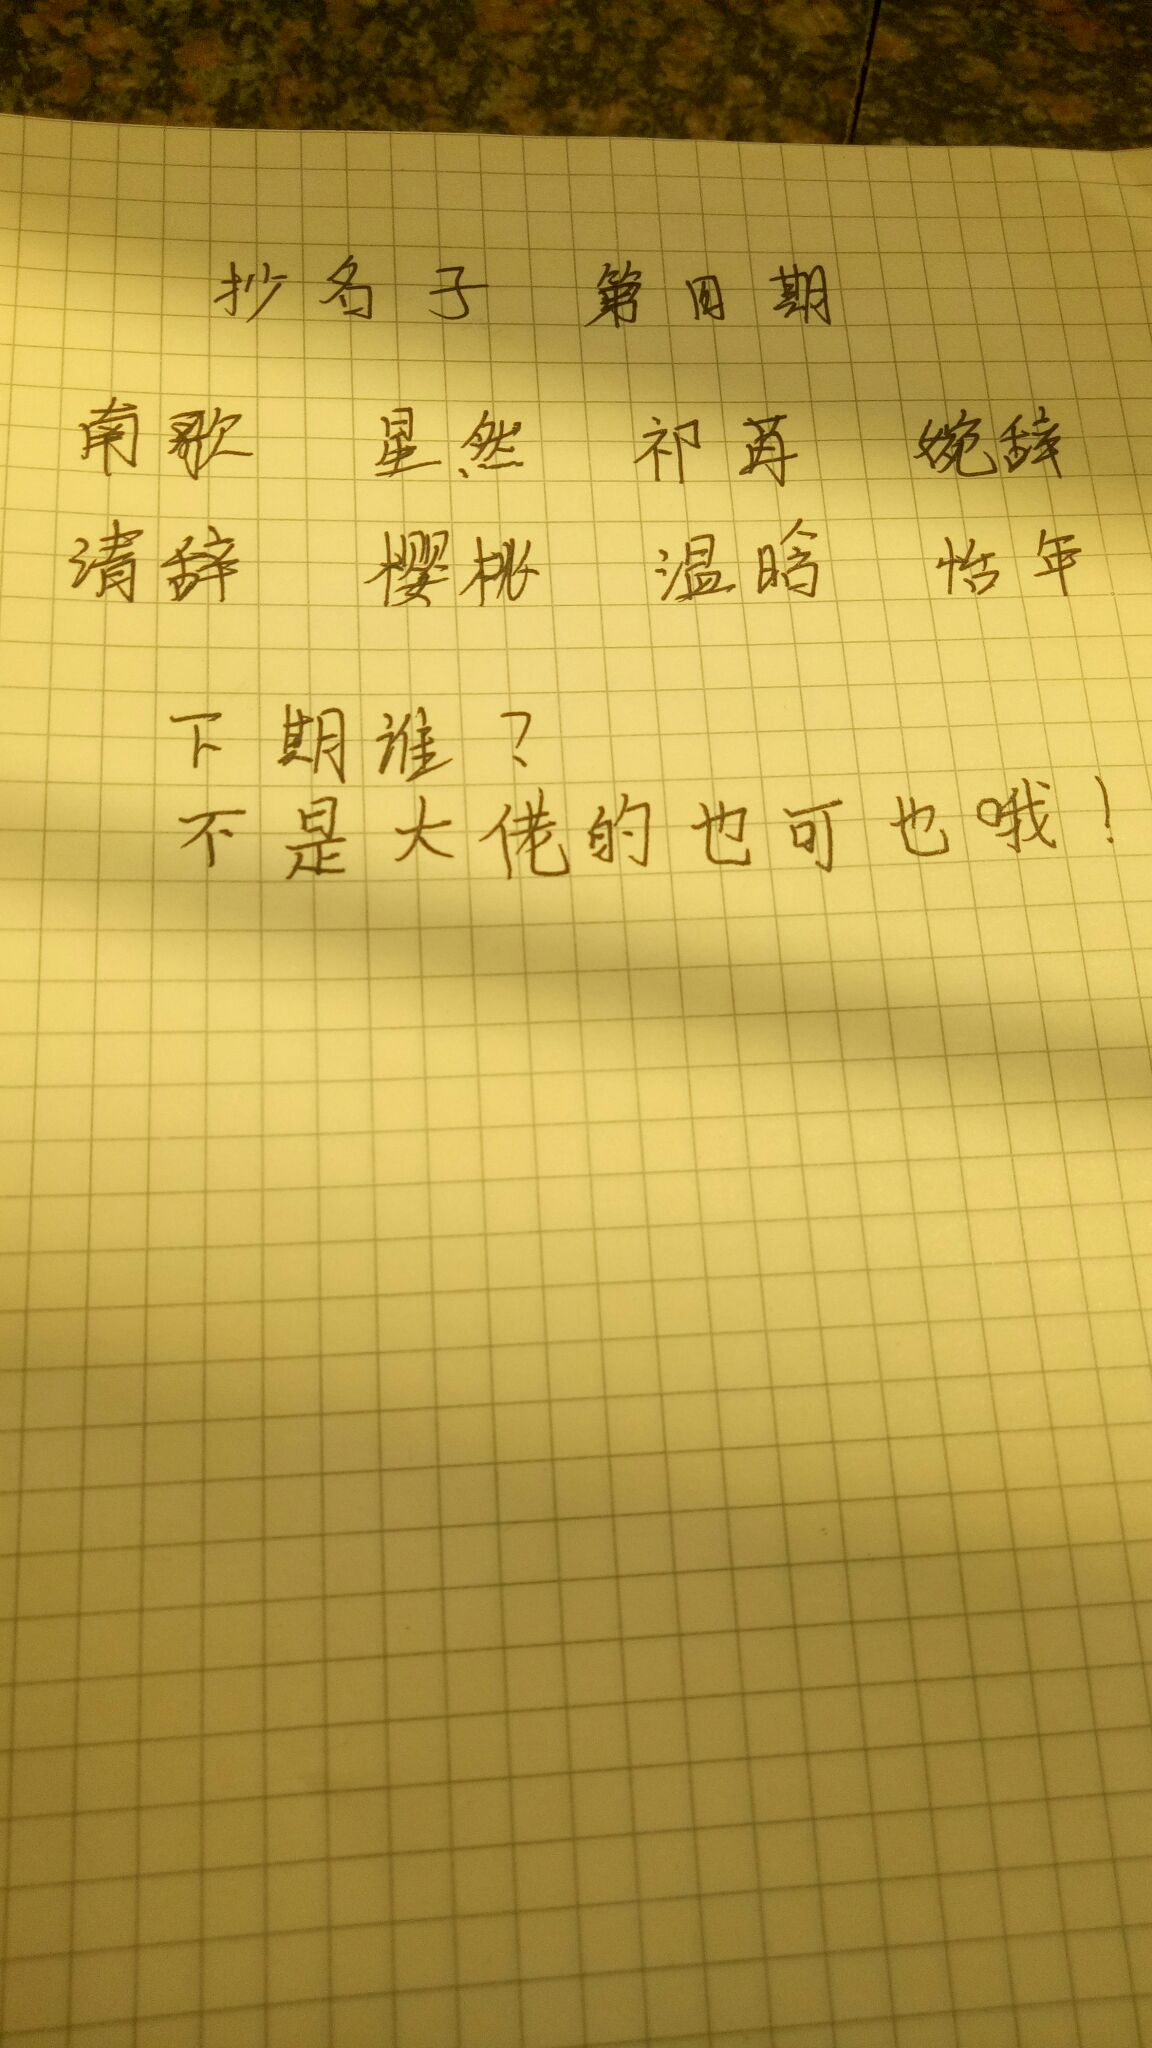 抄名子 第四期
南歌 星然 祁苒 婉辞
清辞 樱桃 温晗 恬年
下期谁？
不是大佬的也可也哦！